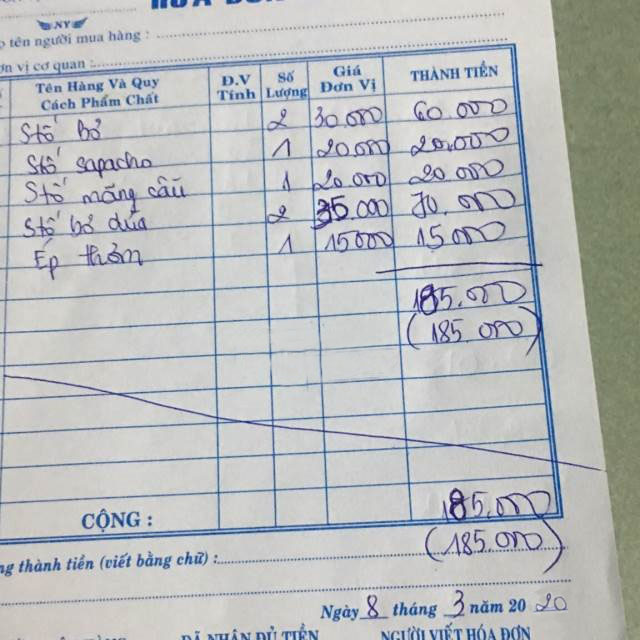 HÓA ĐƠN
NY
tên người mua hàng :
vị cơ quan :
Tên Hàng Và Quy Cách Phẩm Chất Đ.V Tính Số Lượng Giá Đơn Vị THÀNH TIỀN
Stố bơ 2 30.000 60.000
Stố sapacho 1 20.000 20.000
Stố mãng cầu 1 20.000 20.000
Stố bơ dừa 2 35.000 70.000
Ép thơm 1 15000 15.000
185.000
(185.000)
CỘNG : 185.000
thành tiền (viết bằng chữ) : (185.000)
Ngày 8 tháng 3 năm 20 20
ĐÃ NHẬN ĐỦ TIỀN NGƯỜI VIẾT HÓA ĐƠN